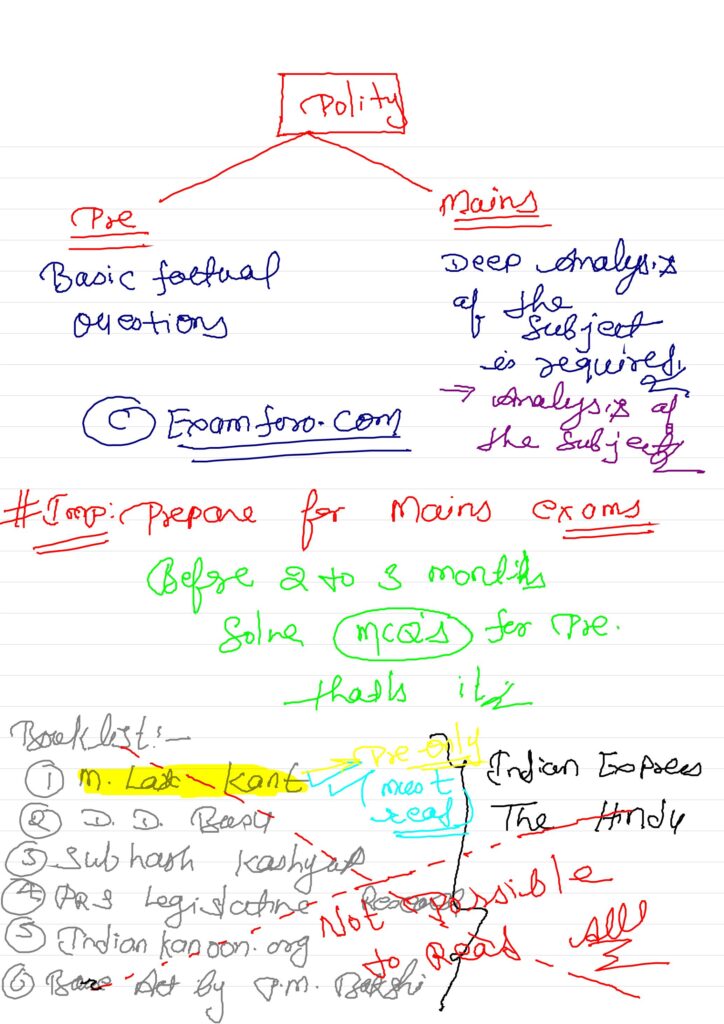 Polity
Pre
Basic factual
Questions
Mains
Deep Analysis
of the
Subject
is required
→ Analysis of
the Subject
© Examforo.com
#Imp: Prepare for Mains exams
Before 2 to 3 months
Solve MCQ's for Pre.
thats it
Booklist:-
① M. Laxmikant
Pre only
(must
read)
② D. D. Basu
③ Subhash Kashyap
④ PRS Legislative Research
⑤ Indian kanoon.org
⑥ Bare Act by P.M. Bakshi
Indian Express
The Hindu
Not Possible
to Read All